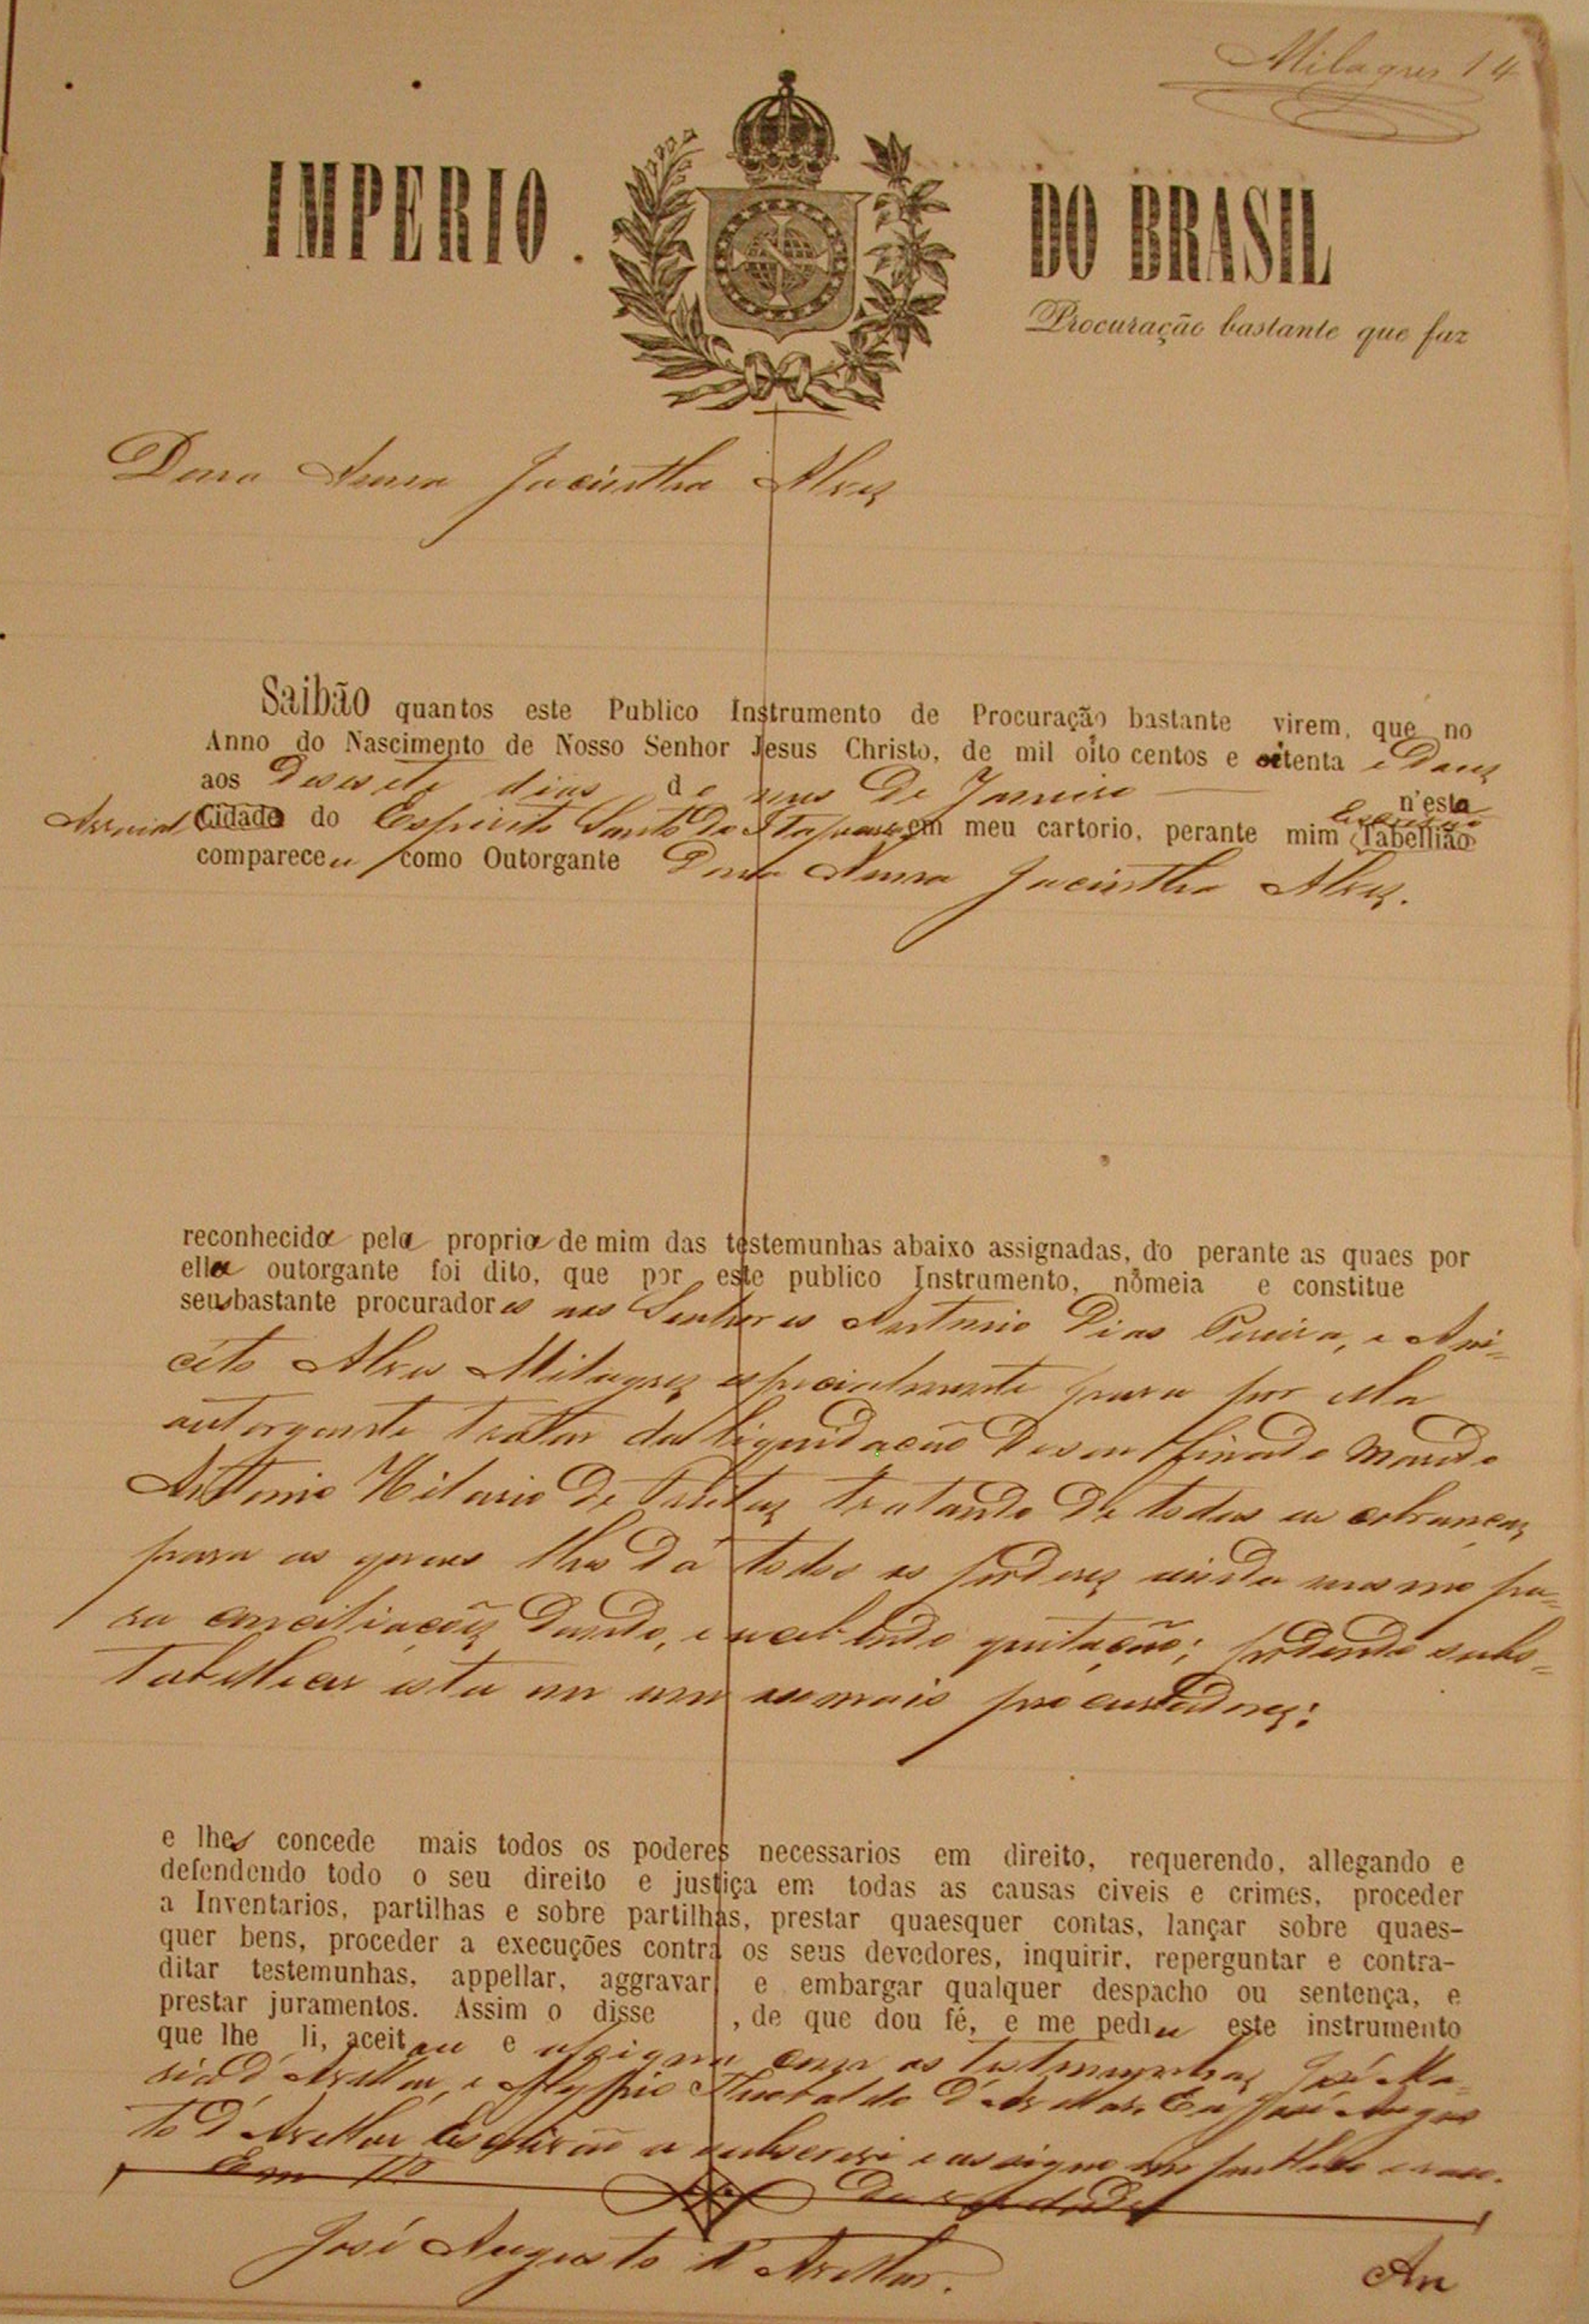 Milagres 14
IMPERIO . DO BRASIL
Procuração bastante que faz
Dona Anna Jacintha Alves
Saibão quantos este Publico Instrumento de Procuração bastante virem, que no
Anno do Nascimento de Nosso Senhor Jesus Christo, de mil oito centos e oitenta e Dous
aos Desesete dias de mes De Janeiro n'esta
Arraial Cidade do Espirito Santo do em meu cartorio, perante mim Escrivão Tabellião
compareceu como Outorgante Dona Anna Jacintha Alves.
reconhecida pela propria de mim das testemunhas abaixo assignadas, do perante as quaes por
ella outorgante foi dito, que por este publico Instrumento, nomeia e constitue
seus bastante procuradores nos Senhores Antonio Dias Pereira, e Ani-
ceto Alves Milagres especialmente para por ella
outorgante tratar da liquidação De seu finado Marido
Antonio Hilario De Freitas tratando De todas as cobranças
para as quaes lhes Dá todos os poderes ainda mesmo pa-
ra conciliações Dando, e recebendo quitação; podendo subs-
tabellecer esta em um ou mais procuradores;
e lhes concede mais todos os poderes necessarios em direito, requerendo, allegando e
defendendo todo o seu direito e justiça em todas as causas civeis e crimes, proceder
a Inventarios, partilhas e sobre partilhas, prestar quaesquer contas, lançar sobre quaes-
quer bens, proceder a execuções contra os seus devedores, inquirir, reperguntar e contra-
ditar testemunhas, appellar, aggravar e embargar qualquer despacho ou sentença, e
prestar juramentos. Assim o disse , de que dou fé, e me pediu este instrumento
que lhe li, aceitou e assigna com as testemunhas José Ma-
ria d'Avellar, e Theobaldo d'Avellar. Eu José Augus
to d'Avellar Escrivão o subscrevi e assigno em publico e raso.
Em Tº Da verdade
José Augusto d'Avellar.
An